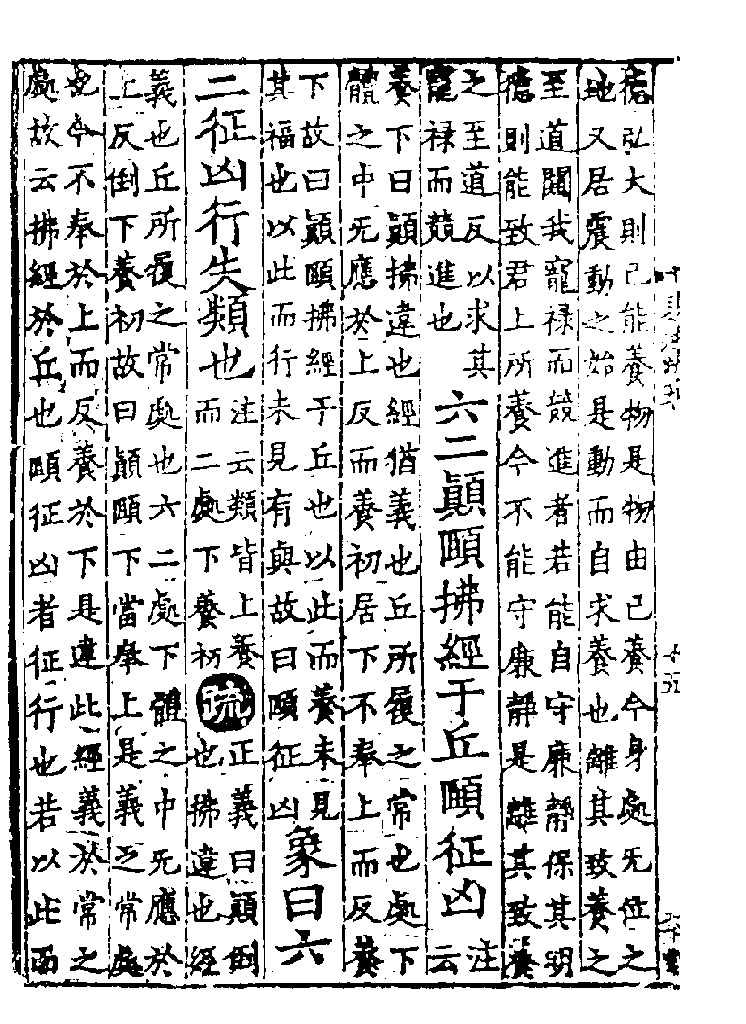 德弘大則己能養物是物由己養今身處无位之
地又居震動之始是動而自求養也離其致養之
至道闚我寵禄而競進者若能自守廉靜保其明
德則能致君上所養今不能守廉靜是離其致養
之至道反以求其
寵禄而競進也
六二顛頤拂經于丘頤征凶
注
云
養下曰顛拂違也經猶義也丘所履之常也處下
體之中无應於上反而養初居下不奉上而反養
下故曰顛頤拂經于丘也以此而養未見
其福也以此而行未見有與故曰頤征凶
象曰六
二征凶行失類也
注云類皆上養
而二處下養初
疏
正義曰顛倒
也拂違也經
義也丘所履之常處也六二處下體之中无應於
上反倒下養初故曰顛頤下當奉上是義之常處
也今不奉於上而反養於下是違此經義於常之
處故云拂經於丘也頤征凶者征行也若以此而